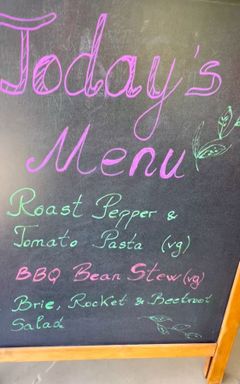 Today's
Menu
Roast Pepper &
Tomato Pasta (vg)
BBQ Bean Stew (vg)
Brie, Rocket & Beetroot
Salad